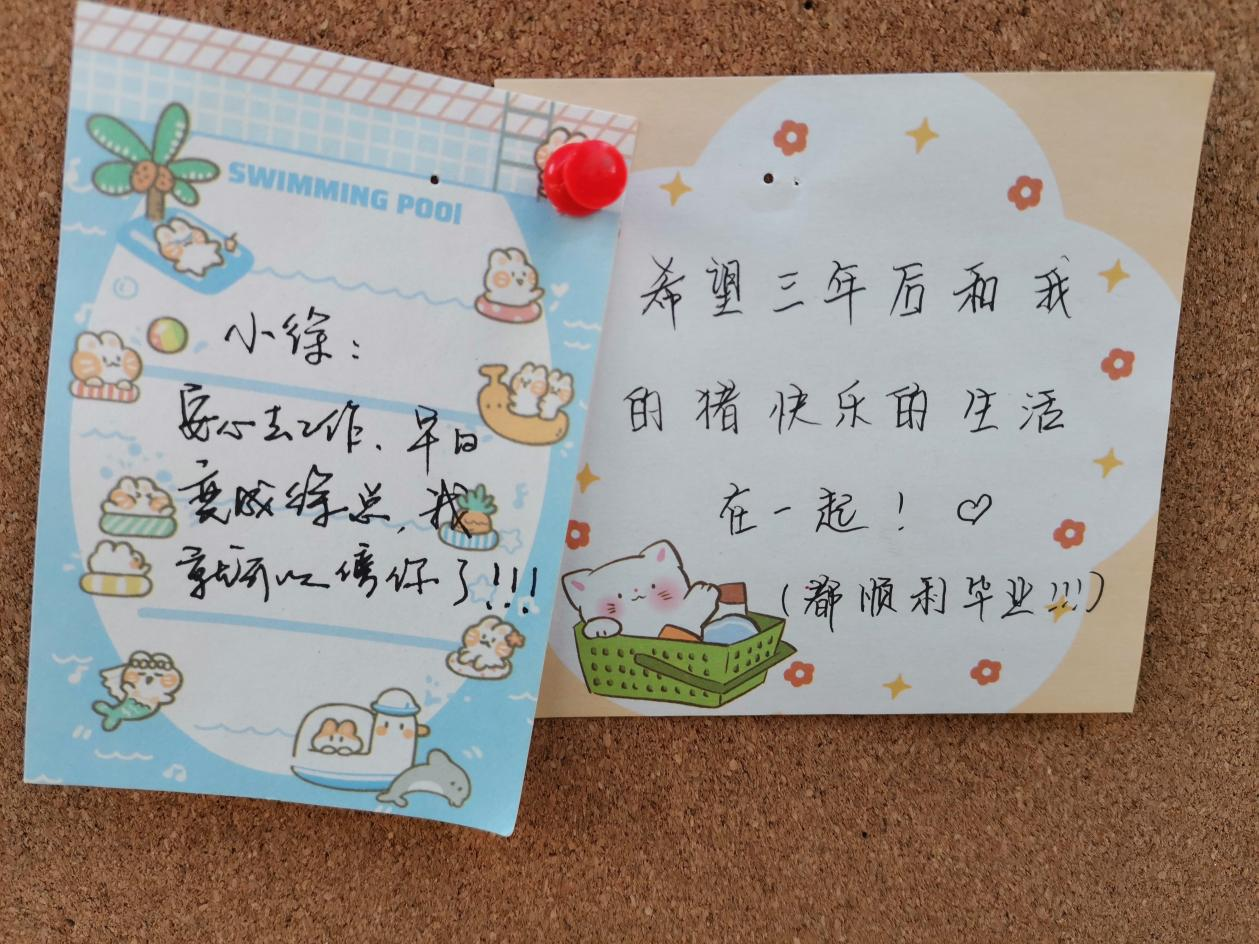 SWIMMING POOl
小徐：
安心去工作、早日
变成徐总，我
就可以傍你了!!!
希望三年后和我
的猪快乐的生活
在一起！♡
（都顺利毕业!!!）